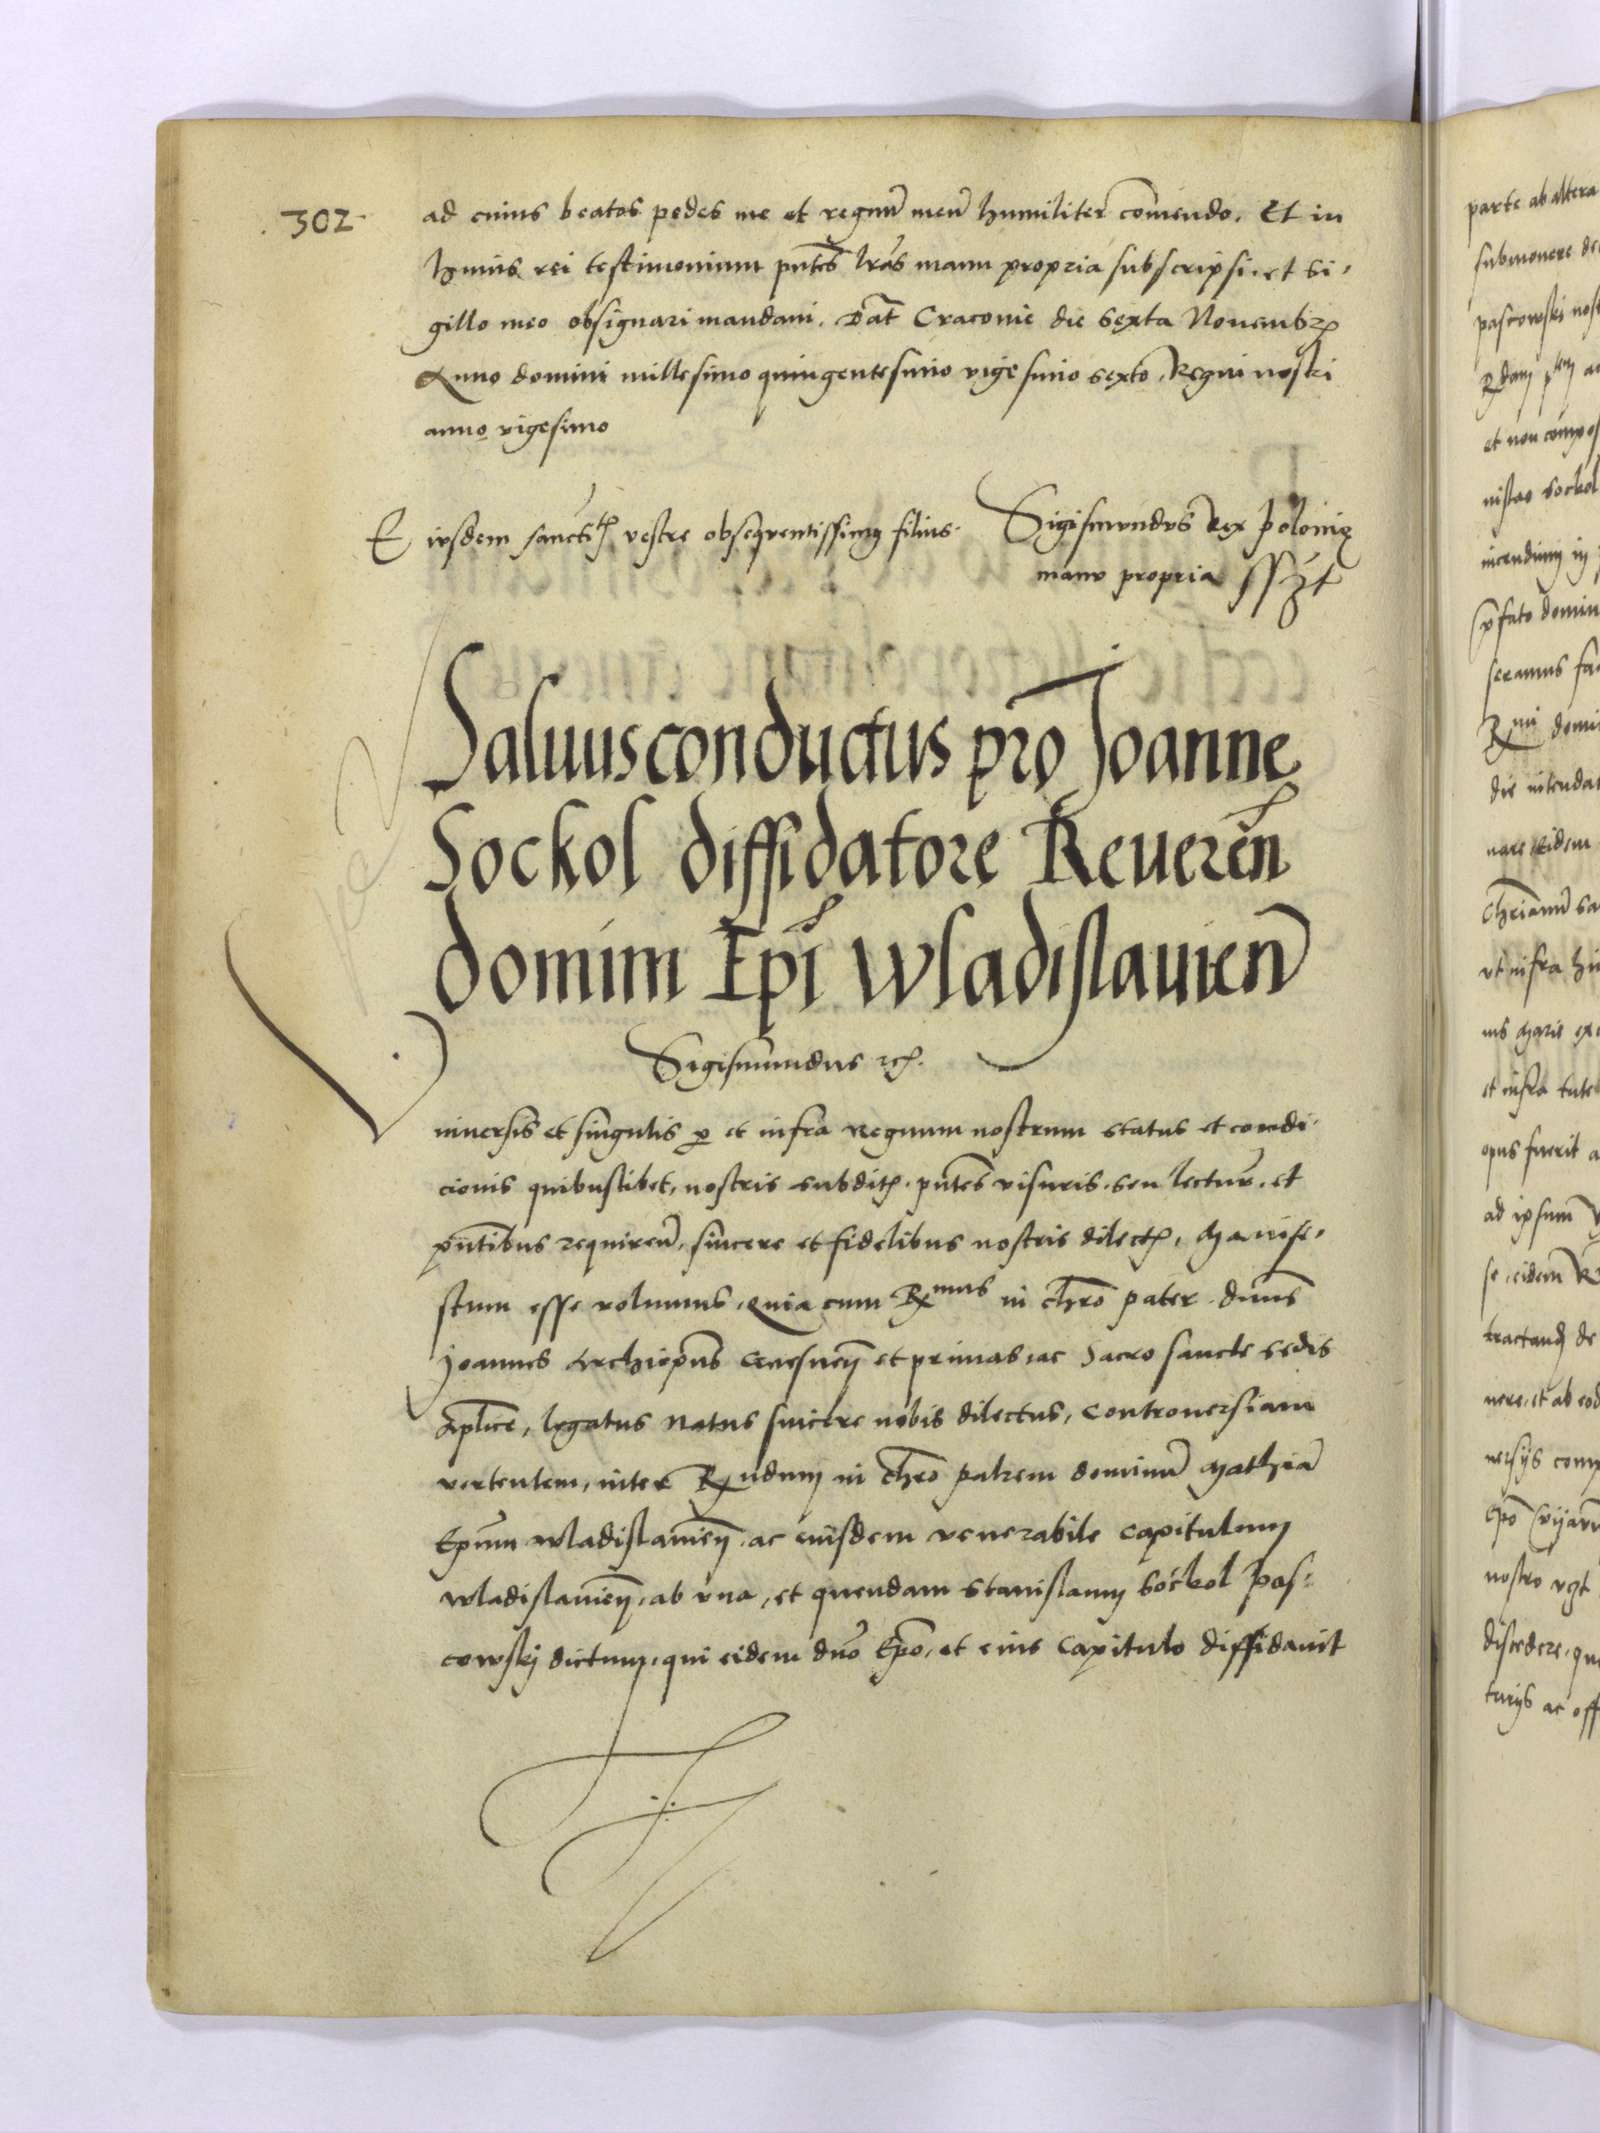 302
ad cuius beatos pedes me et regnū meū humiliter comendo. Et in
huius rei testimonium pntēs lrās manu propria subscripsi. et Si-
gillo meo obsignari mandavi. Dat Cracovie die Sexta Novembrꝫ
Anno domini millesimo quingentesimo vigesimo sexto, Regni nostri
anno vigesimo
Eiusdem sanctꝭ vestre obseqventissimꝰ filius. Sigismvndvs Rex Polonię
manv propria sszt
Saluusconductus pro Joanne
Sockol diffidatore Reueren
domini Epi Wladislauien
Sigismundus ꝛcꝭ.
Vniuersis et singulis ꝑ et infra Regnum nostrum status et condi-
cionis quibuslibet, nostris subditꝭ. pntēs visuris. seu lectur. et
pntibus requiren, sincere et fidelibus nostris dilectꝭ, Manife-
stum esse volumus, Quia cum Rmus in chro pater. dnus
Joannes Archiepūs Gnesneñ et primas, ac Sacro sancte sedis
Aplice, legatus Natus sincere nobis dilectus, Controuersiam
vertentem, inter Rndum in chro patrem dominū Mathiā
Epum wladislavieñ. ac eiusdem venerabile Capitulum
wladislavieñ, ab vna, et quendam Stanislaum Sockol Pas-
cowskj dictum, qui eidem dno Epo, et eius Capitulo diffidauit
parte ab altera
submonere
pascowski
et non
nislao Sockol
incendium in
seramus
die intendat
nare, Eidem
vt infra
et infra
opus fuerit
ad ipsum
se, eidem
tractand de
nere, et ab
versijs
nostro
discedere,